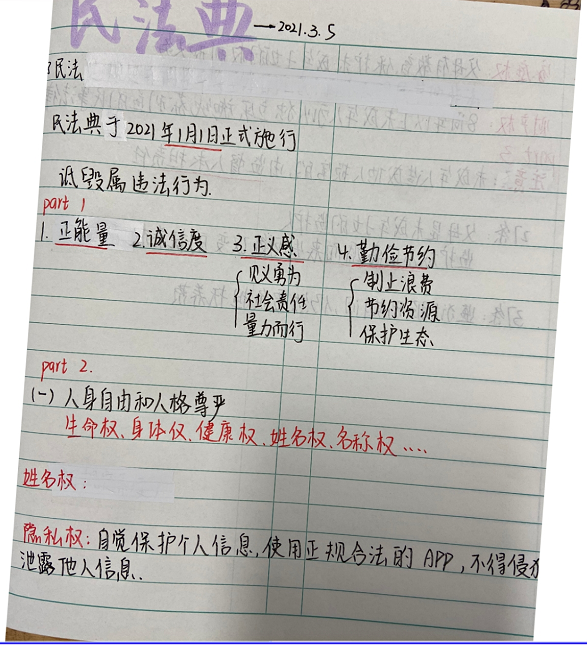 民法典 →2021.3.5
民法
民法典于2021年1月1日正式施行
诋毁属违法行为.
part 1
1. 正能量 2.诚信度 3.正义感 4.勤俭节约
见义勇为 制止浪费
社会责任 节约资源
量力而行 保护生态
part 2.
(一)人身自由和人格尊严
生命权、身体仅、健康权、姓名权、名称权....
姓名权:
隐私权:自觉保护个人信息,使用正规合法的APP,不得侵
泄露他人信息.